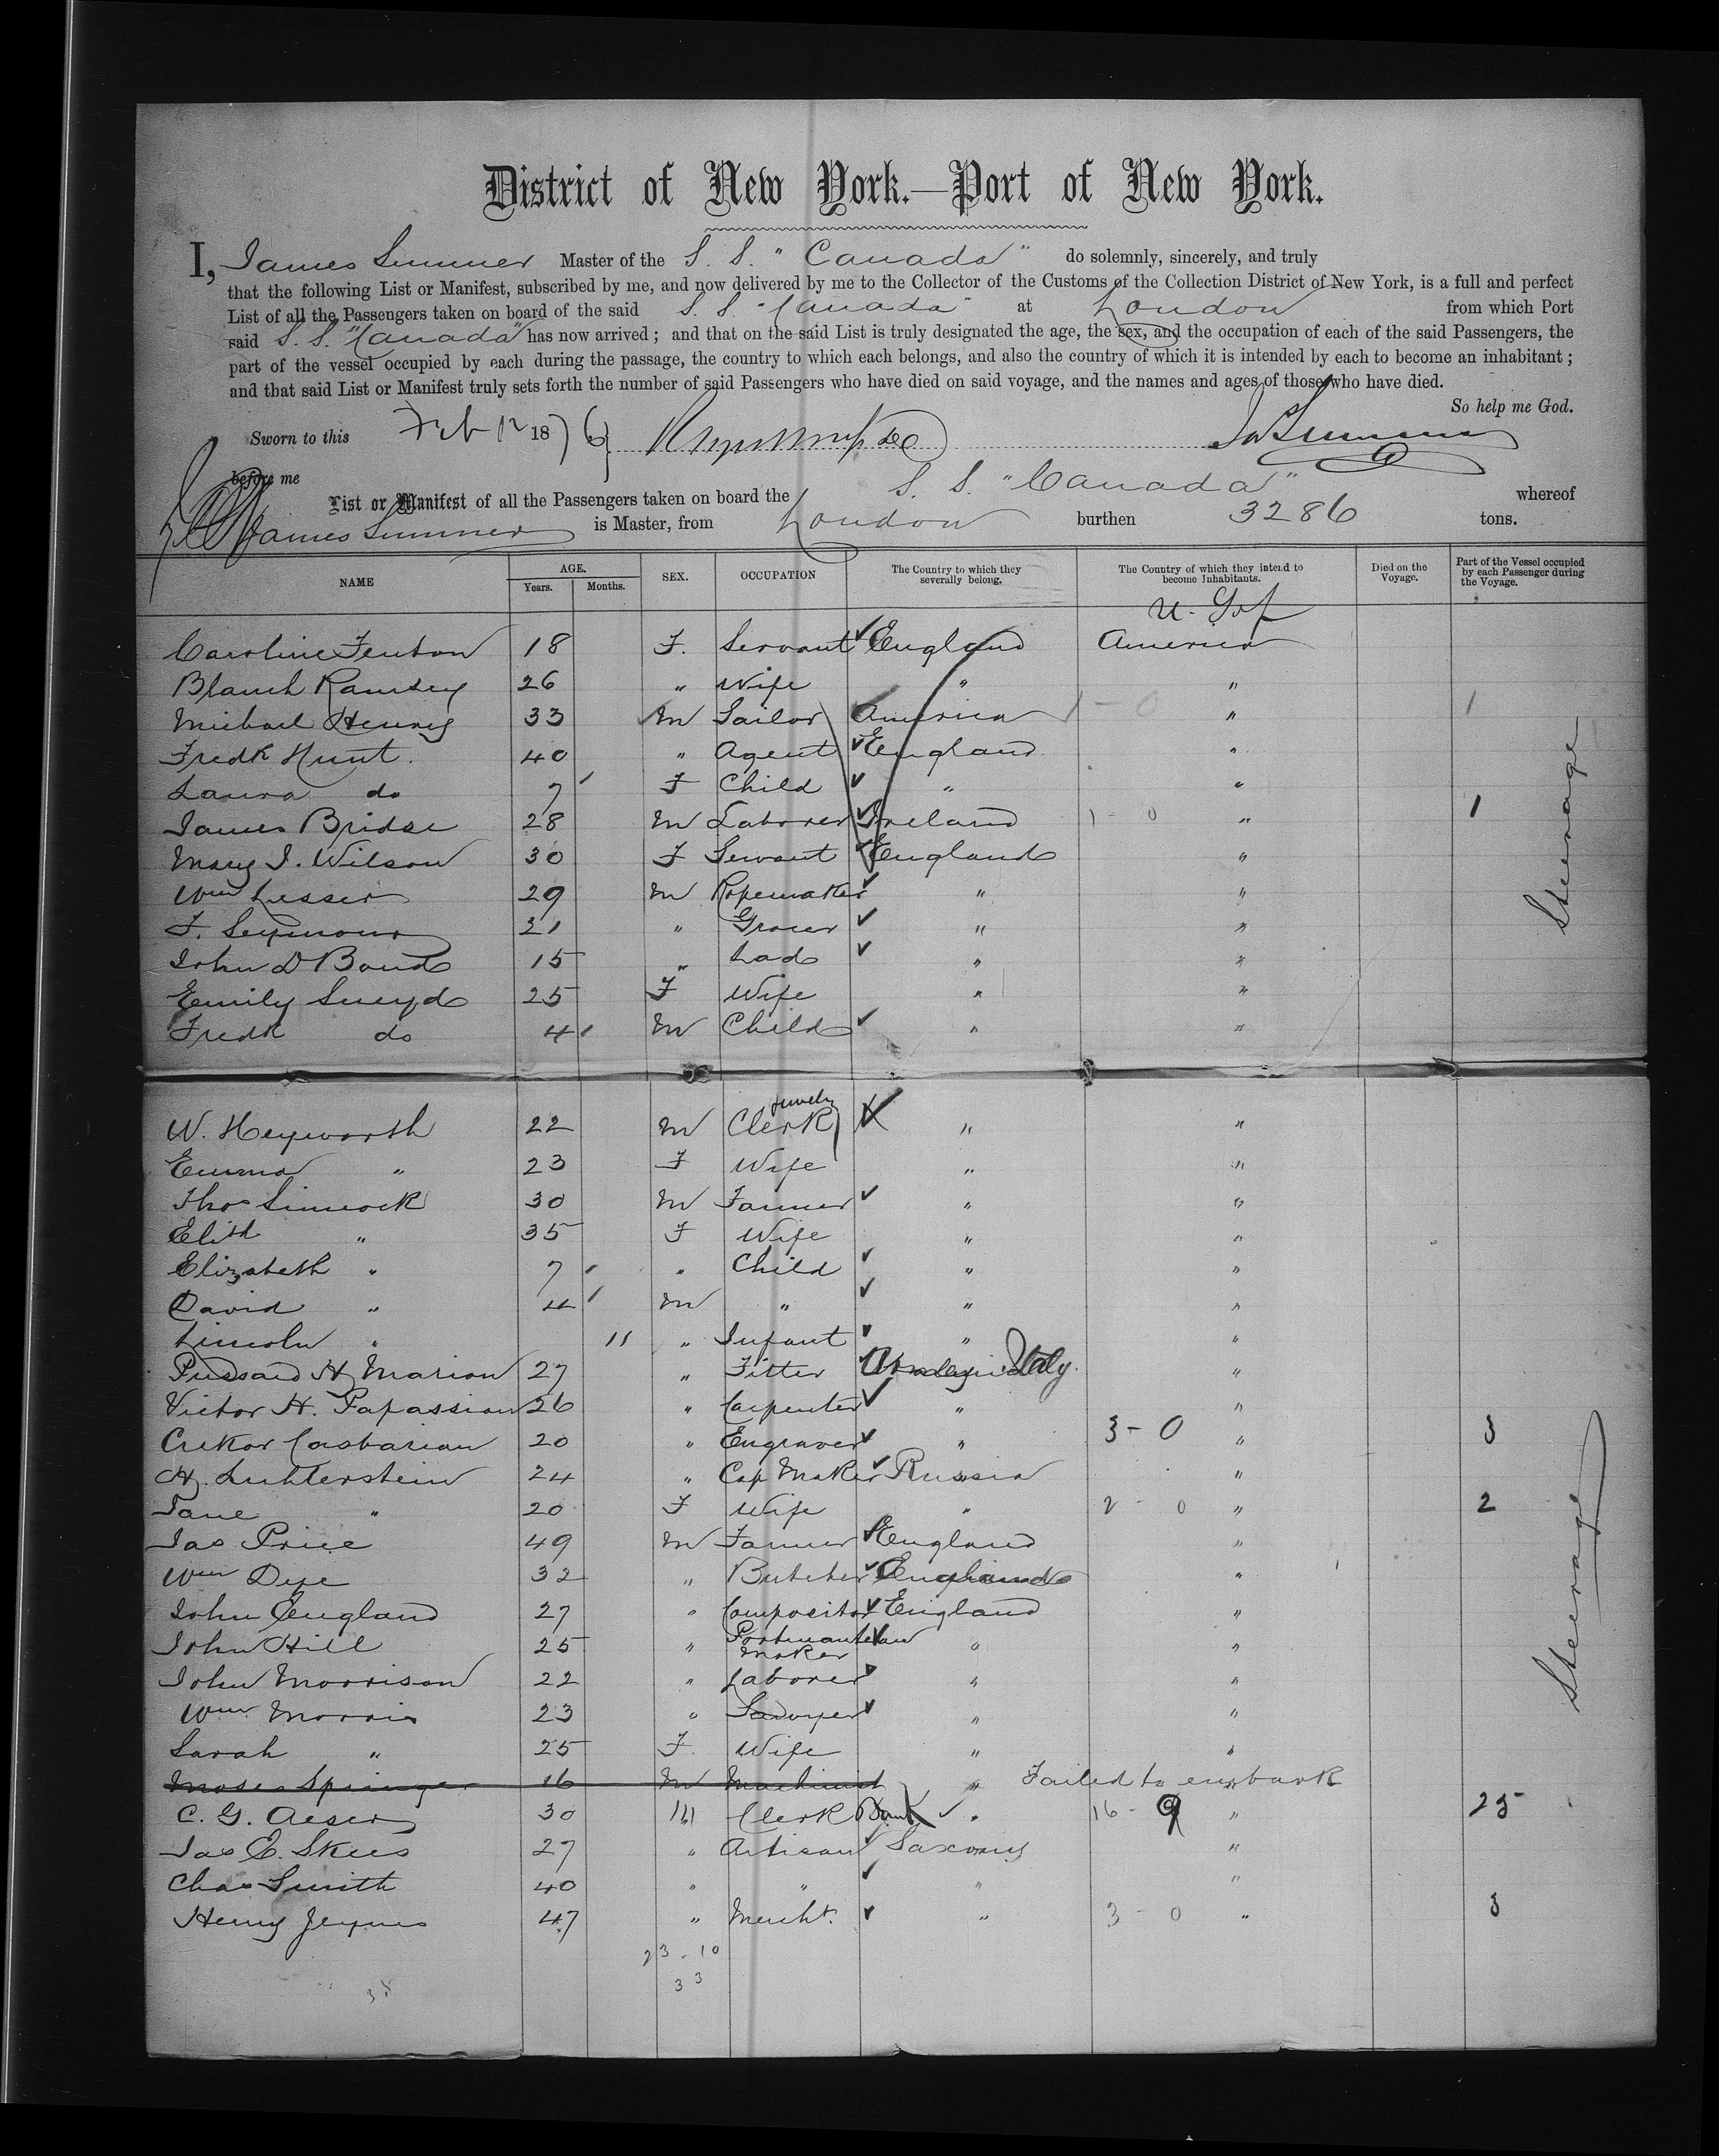 District of New York.—Port of New York.
I, James Sumner Master of the S. S. "Canada" do solemnly, sincerely, and truly
that the following List or Manifest, subscribed by me, and now delivered by me to the Collector of the Customs of the Collection District of New York, is a full and perfect
List of all the Passengers taken on board of the said S. S. "Canada" at London from which Port
said S. S. "Canada" has now arrived; and that on the said List is truly designated the age, the sex, and the occupation of each of the said Passengers, the
part of the vessel occupied by each during the passage, the country to which each belongs, and also the country of which it is intended by each to become an inhabitant;
and that said List or Manifest truly sets forth the number of said Passengers who have died on said voyage, and the names and ages of those who have died.
So help me God.
Sworn to this Feb 12 1876 Jas Sumner
before me
List or Manifest of all the Passengers taken on board the S. S. "Canada" whereof
James Sumner is Master, from London burthen 3286 tons.
NAME AGE. Years. Months. SEX. OCCUPATION The Country to which they severally belong. The Country of which they intend to become Inhabitants. Died on the Voyage. Part of the Vessel occupied by each Passenger during the Voyage.
U. S. of
Caroline Fenton 18 F. Servant England America
Blanch Ramsey 26 " Wife " "
Michael Henry 33 M Sailor America 1 - 0 " 1
Fredk Hunt. 40 " Agent England "
Laura do 7 F Child " "
James Bridge 28 M Laborer Ireland 1 - 0 " 1
Mary J. Wilson 30 F Servant England "
Wm Lesser 29 M Ropemaker " "
F. Seymour 21 " Grocer " "
John D Bond 15 " Lad " "
Emily Sneyd 25 F Wife " "
Fredk do 4 M Child " "
Steerage
W. Heyworth 22 M Clerk " "
Emma " 23 F Wife " "
Thos Simcock 30 M Farmer " "
Elith " 35 F Wife " "
Elizabeth " 7 " Child " "
David " 4 M " " "
Lincoln " 11 " Infant " "
Pussard H Marion 27 " Fitter Italy. "
Victor H. Papassian 26 " Carpenter " "
Crikor Casbarian 20 " Engraver " 3 - 0 " 3
H. Luhterstein 24 " Cap Maker Russia "
Jane " 20 F Wife " 2 - 0 " 2
Jas Price 49 M Farmer England "
Wm Dye 32 " Butcher England "
John England 27 " Compositor England "
John Hill 25 " Portmanteau Maker " "
John Morrison 22 " Laborer " "
Wm Morris 23 " Sawyer " "
Sarah " 25 F. Wife " "
Moses Springer 16 M Machinist " Failed to embark "
C. G. Aeser 30 M Clerk Bank " 16 - 9 " 25
Jas E. Skues 27 " Artisan Saxony "
Chas Smith 40 " " " "
Henry Jeynes 47 " Mercht. " 3 - 0 " 3
Steerage
23 - 10
33